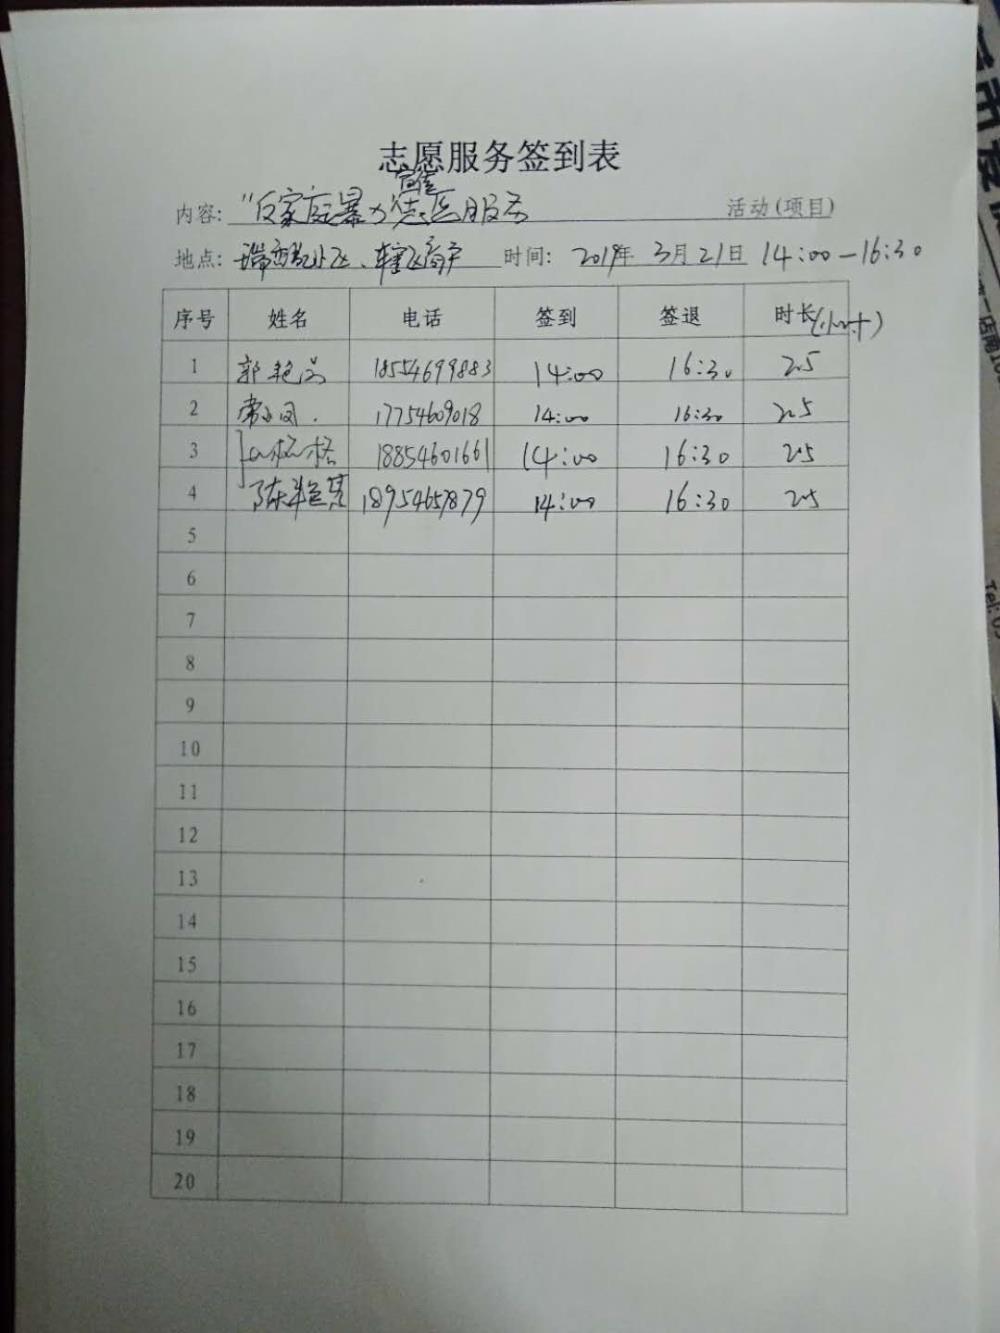 志愿服务签到表
内容: "反家庭暴力 服务 活动(项目)
地点: 小区、辖区商户 时间: 2019年 3月21日 14:00—16:30
序号 姓名 电话 签到 签退 时长(小时)
1 郭艳 18554699883 14:00 16:30 2.5
2 17754609018 14:00 16:30 2.5
3 格 18854601661 14:00 16:30 2.5
4 陈 18954657879 14:00 16:30 2.5
5
6
7
8
9
10
11
12
13
14
15
16
17
18
19
20
Tel: 05